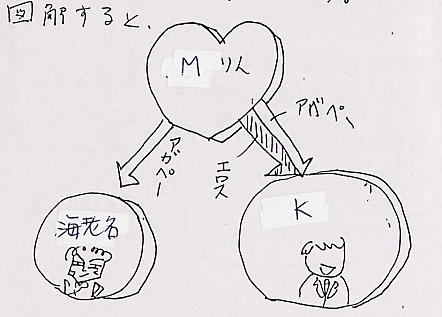 図解すると、
Mりん
アガペー
エロス
アガペー
海老名
K